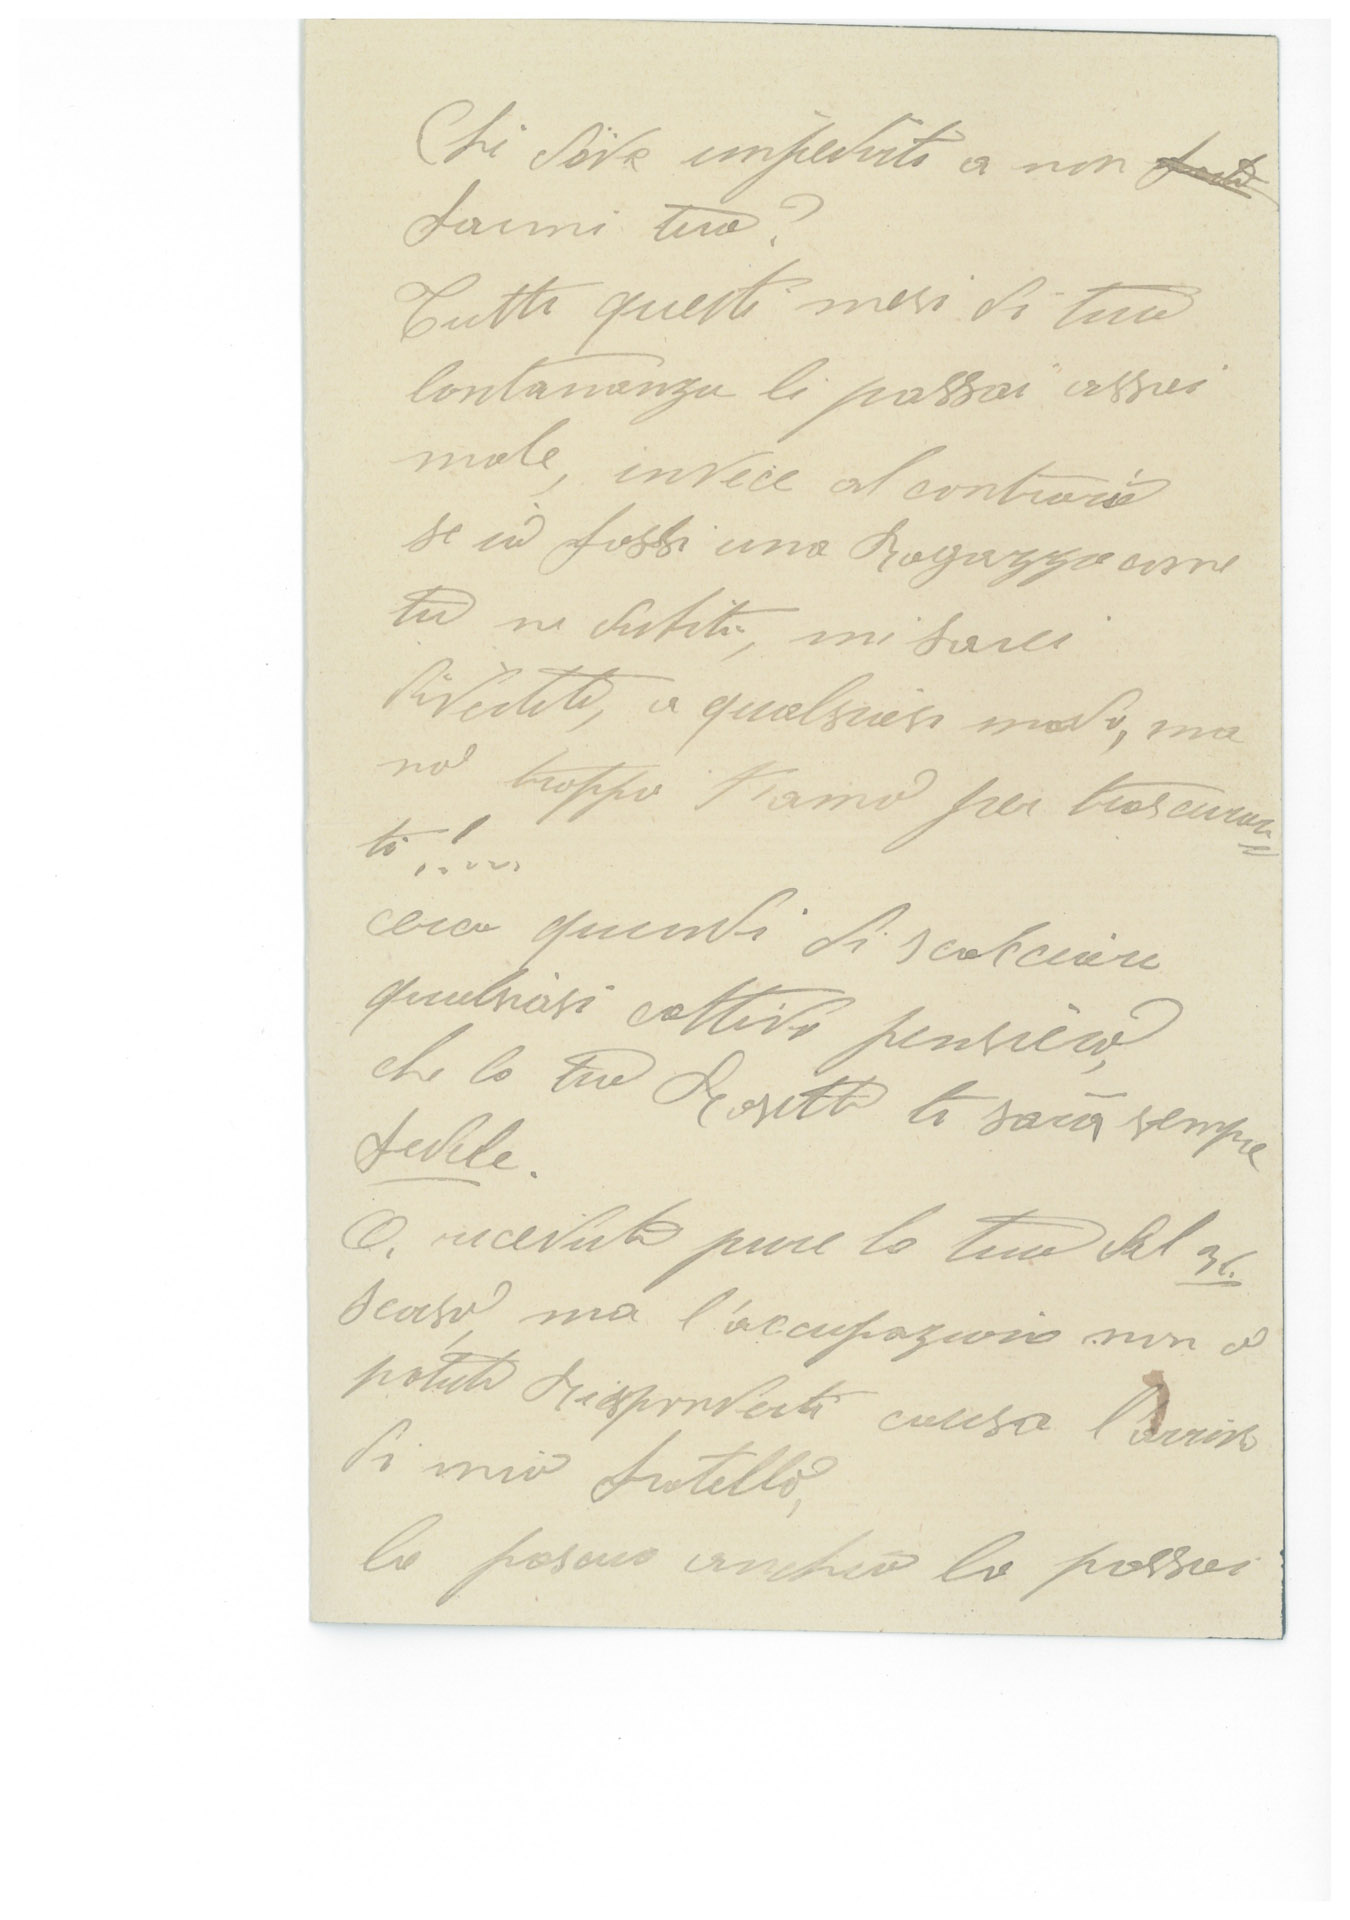 Chi dove impedirti a non
farmi tua?
Tutti questi mesi di tua
lontananza li passai assai
male, invece al contrario
se io fossi una Ragazza come
tu ne dubiti, mi sarei
divertita, a qualsiasi modo, ma
no troppo t'amo per trascurar=
ti!....
cerca quindi di scalciare
qualsiasi cattivo pensiero,
che la tua Rosetta ti sarà sempre
fedele.
O, ricevuta pure la tua del 31.
scorso, ma l'occupazione non o
potuto Risponderti causa l'arrivo
di mio fratello,
la pasqua anch'io la passai